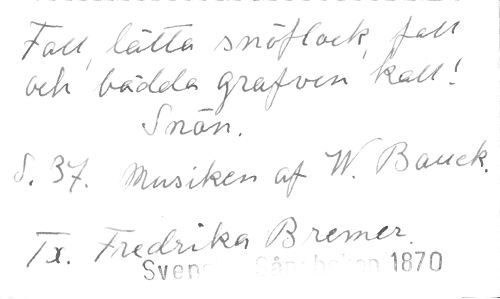 Fall, lätta snöflock, fall
och bädda grafven kall!
Snön.
S. 37. Musiken af W. Bauck.
Tx. Fredrika Bremer.
Svenska Sångboken 1870